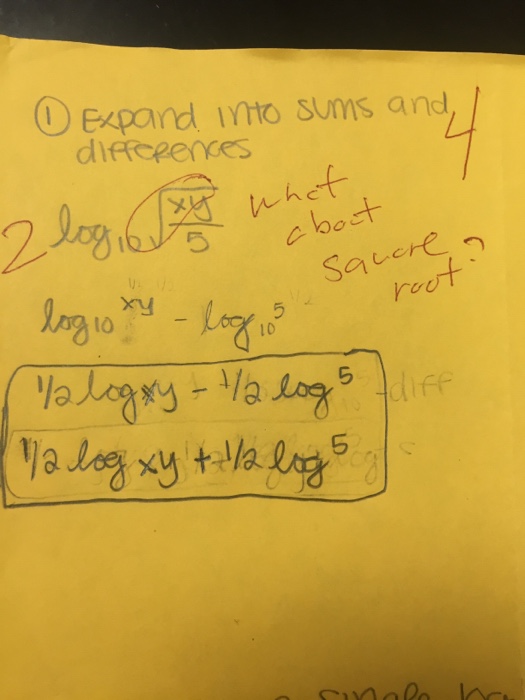 ① Expand into sums and
differences
4
2
log₁₀ √(xy/5)
what
about
square
root?
log₁₀ xy - log₁₀ 5
1/2 log xy - 1/2 log 5
-diff
1/2 log xy + 1/2 log 5